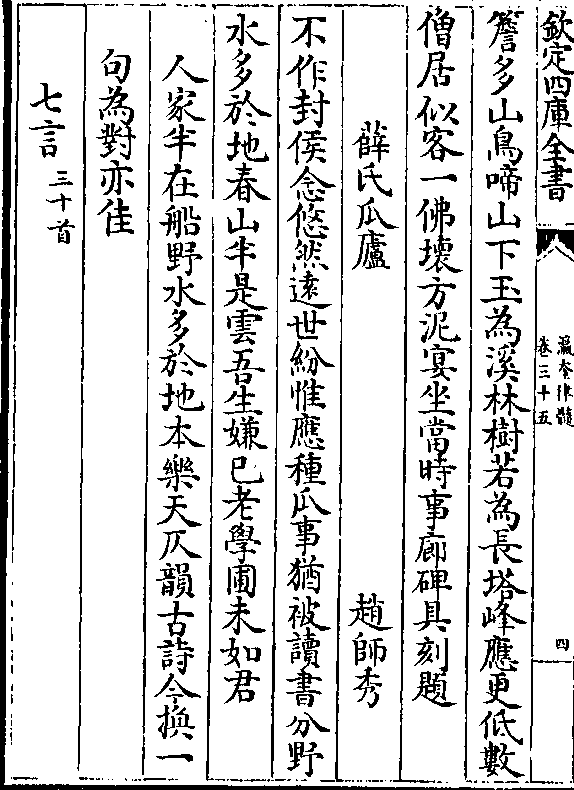 欽定四庫全書
瀛奎律髓
卷三十五
四
簷多山鳥啼山下玉為溪林樹若為長塔峰應更低數
僧居似客一佛壞方泥宴坐當時事廊碑具刻題
薛氏瓜廬 趙師秀
不作封侯念悠然遠世紛惟應種瓜事猶被讀書分野
水多於地春山半是雲吾生嫌已老學圃未如君
人家半在船野水多於地本樂天仄韻古詩今換一
句為對亦佳
七言三十首